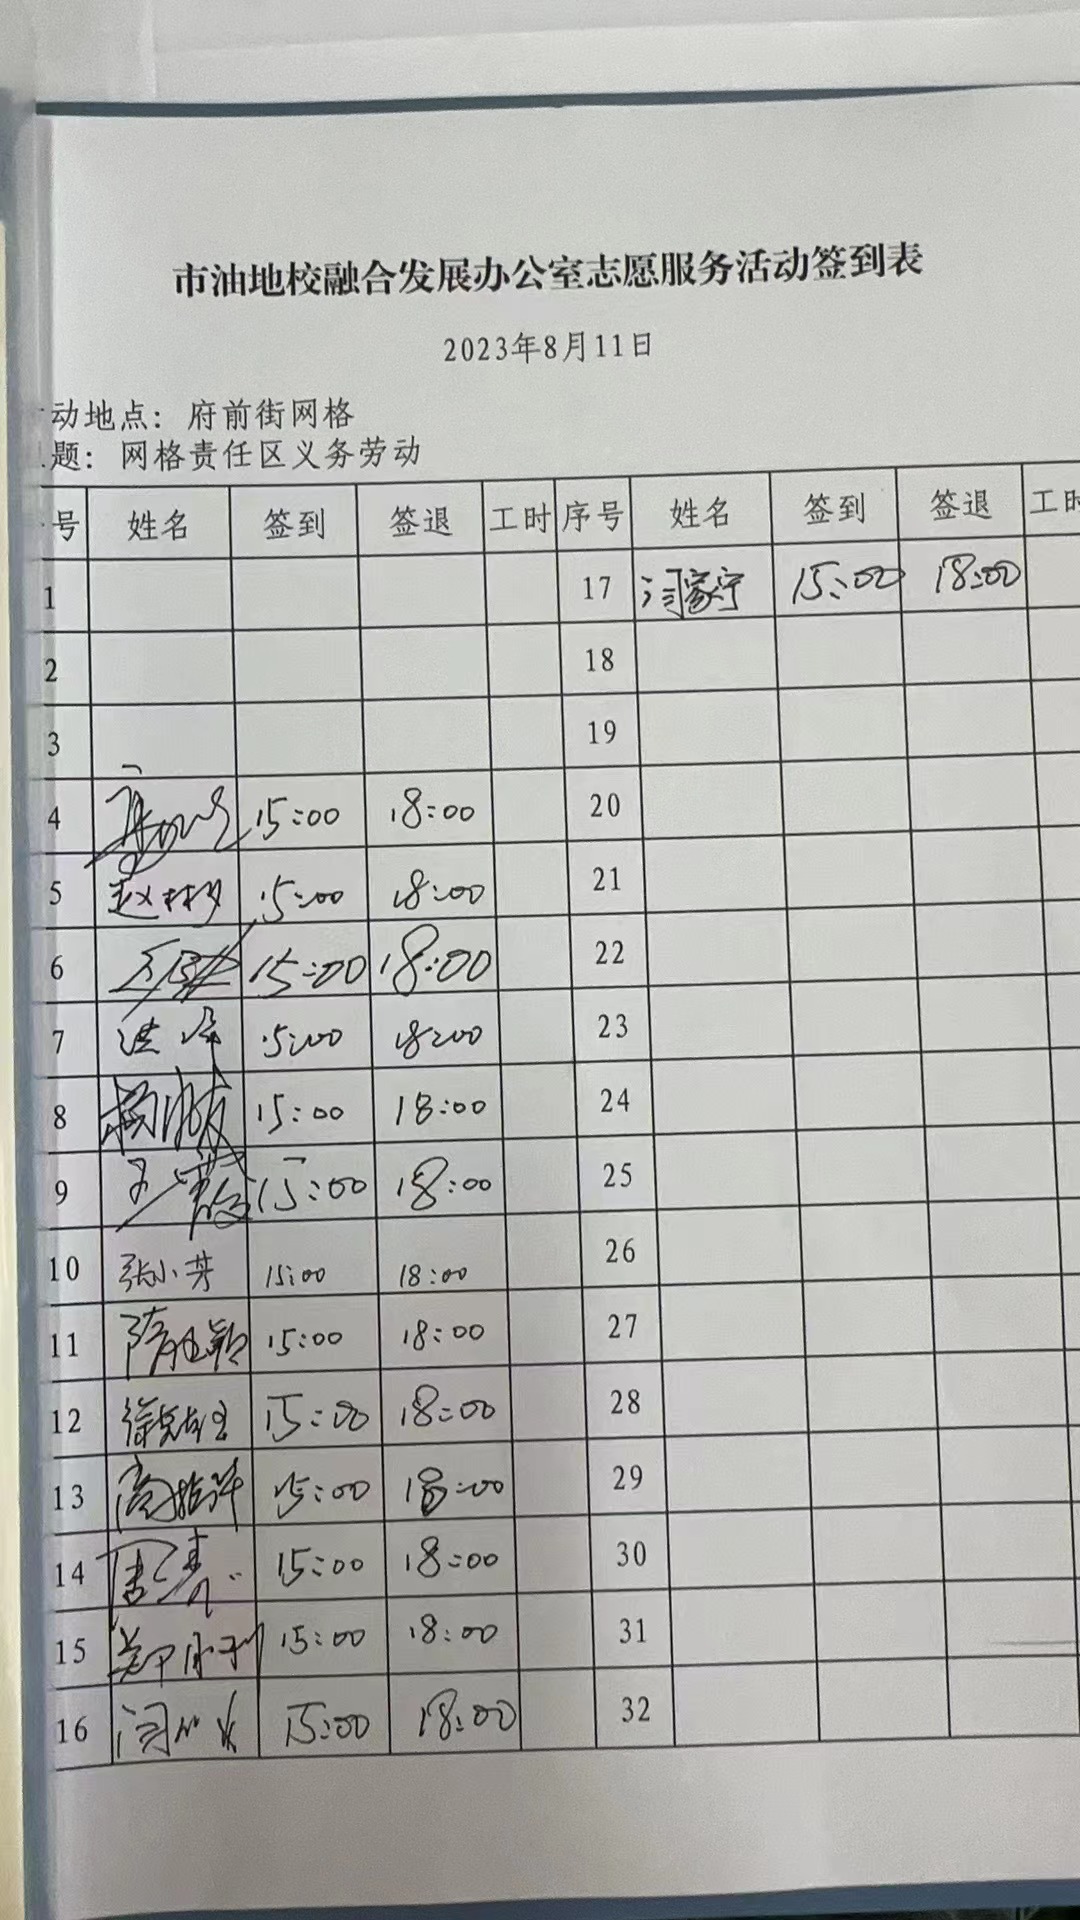 市油地校融合发展办公室志愿服务活动签到表
2023年8月11日
动地点：府前街网格
题：网格责任区义务劳动
号 姓名 签到 签退 工时 序号 姓名 签到 签退 工时
1 17 闫家宁 15:00 18:00
2 18
3 19
4 15:00 18:00 20
5 赵林 15:00 18:00 21
6 15:00 18:00 22
7 洪 15:00 18:00 23
8 杨 15:00 18:00 24
9 王 15:00 18:00 25
10 张小芳 15:00 18:00 26
11 隋 颖 15:00 18:00 27
12 徐 15:00 18:00 28
13 15:00 18:00 29
14 15:00 18:00 30
15 15:00 18:00 31
16 闫 15:00 18:00 32